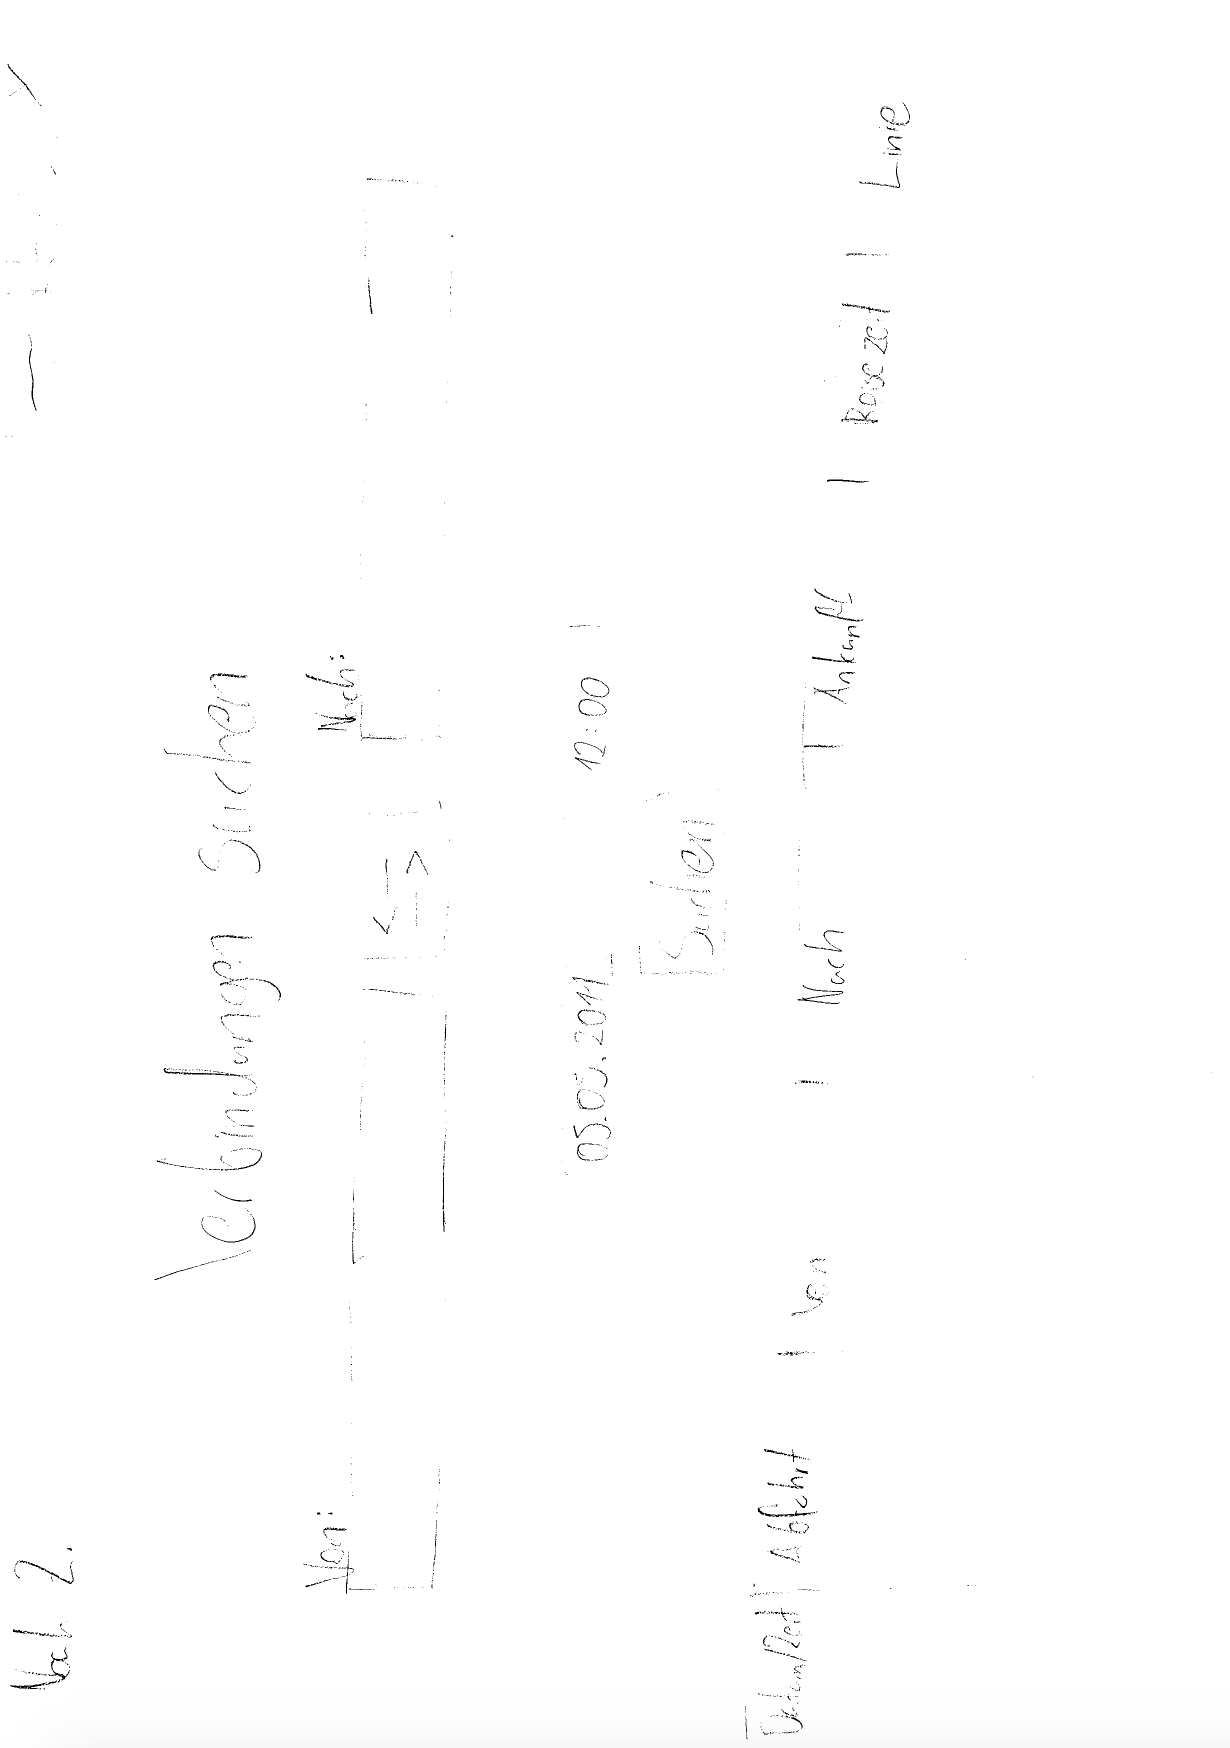 Nach 2.
Verbindungen Suchen
Von: Nach:
05.05.2011 12:00
Suchen
Datum/Zeit | Abfahrt | Von | Nach | Ankunft | Reisezeit | Linie